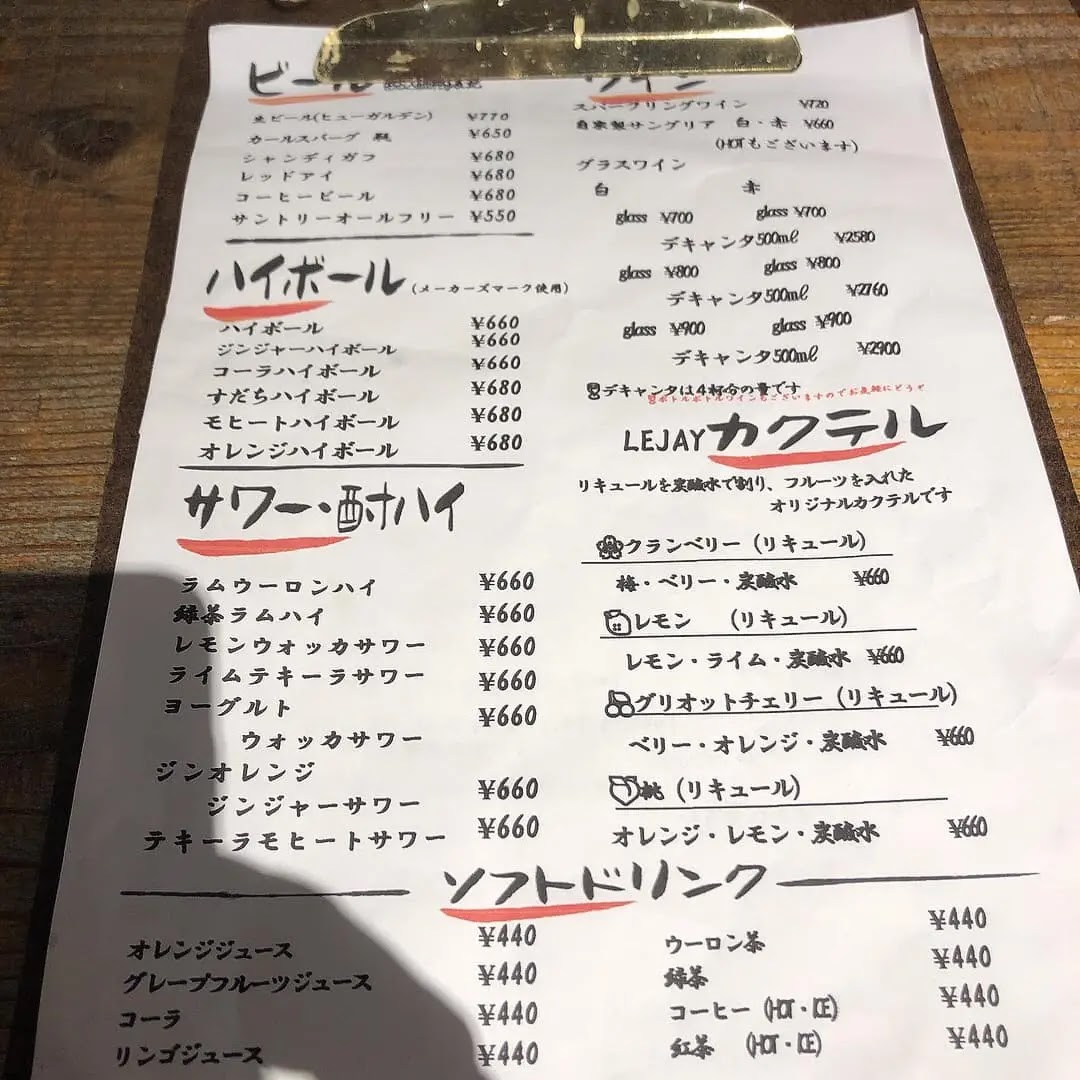 ビール
生ビール(ヒューガルデン) ¥770
カールスバーグ 瓶 ¥650
シャンディガフ ¥680
レッドアイ ¥680
コーヒービール ¥680
サントリーオールフリー ¥550
ハイボール (メーカーズマーク使用)
ハイボール ¥660
ジンジャーハイボール ¥660
コーラハイボール ¥660
すだちハイボール ¥680
モヒートハイボール ¥680
オレンジハイボール ¥680
サワー・酎ハイ
ラムウーロンハイ ¥660
緑茶ラムハイ ¥660
レモンウォッカサワー ¥660
ライムテキーラサワー ¥660
ヨーグルト ¥660
ウォッカサワー
ジンオレンジ
ジンジャーサワー ¥660
テキーラモヒートサワー ¥660
ワイン
スパークリングワイン ¥720
自家製サングリア 白・赤 ¥660
(HOTもございます)
グラスワイン
白 赤
glass ¥700 glass ¥700
デキャンタ500ml ¥2580
glass ¥800 glass ¥800
デキャンタ500ml ¥2760
glass ¥900 glass ¥900
デキャンタ500ml ¥2900
デキャンタは4杯合の量です
ボトルボトルワインもございますのでお気軽にどうぞ
LEJAYカクテル
リキュールを炭酸水で割り、フルーツを入れた
オリジナルカクテルです
クランベリー (リキュール)
梅・ベリー・炭酸水 ¥660
レモン (リキュール)
レモン・ライム・炭酸水 ¥660
グリオットチェリー (リキュール)
ベリー・オレンジ・炭酸水 ¥660
桃 (リキュール)
オレンジ・レモン・炭酸水 ¥660
ソフトドリンク
オレンジジュース ¥440
グレープフルーツジュース ¥440
コーラ ¥440
リンゴジュース ¥440
ウーロン茶 ¥440
緑茶 ¥440
コーヒー (HOT・ICE) ¥440
紅茶 (HOT・ICE) ¥440